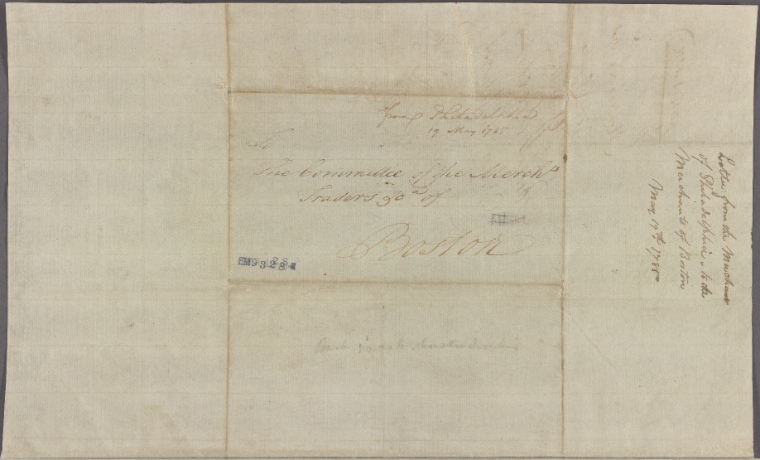 from Philadelphia
19 May 1785
To
The Committee of the Merch.ts
Traders &c.a of
Boston
EM9328
Letter from the Merchants
of Philadelphia to the
Merchants of Boston
May 19th 1785